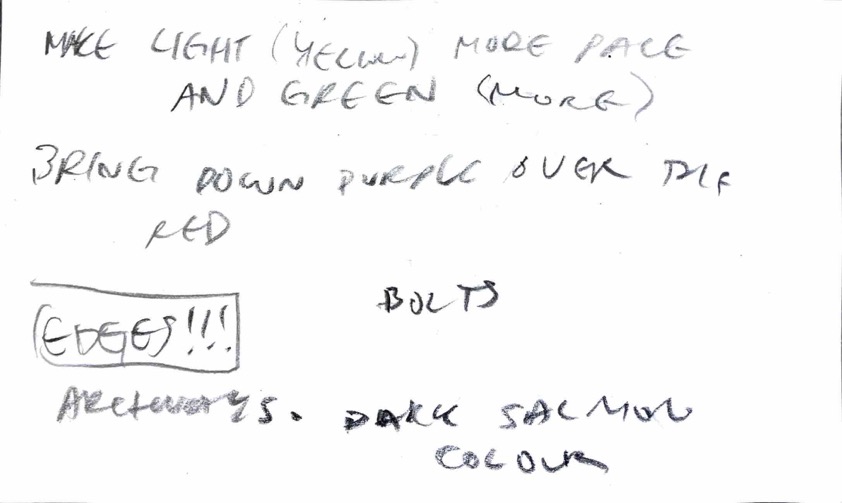 MAKE LIGHT (YELLOW) MORE PALE
AND GREEN (MORE)
BRING DOWN PURPLE OVER THE
RED
BOLTS
EDGES!!!
ARCHWAYS. DARK SALMON
COLOUR